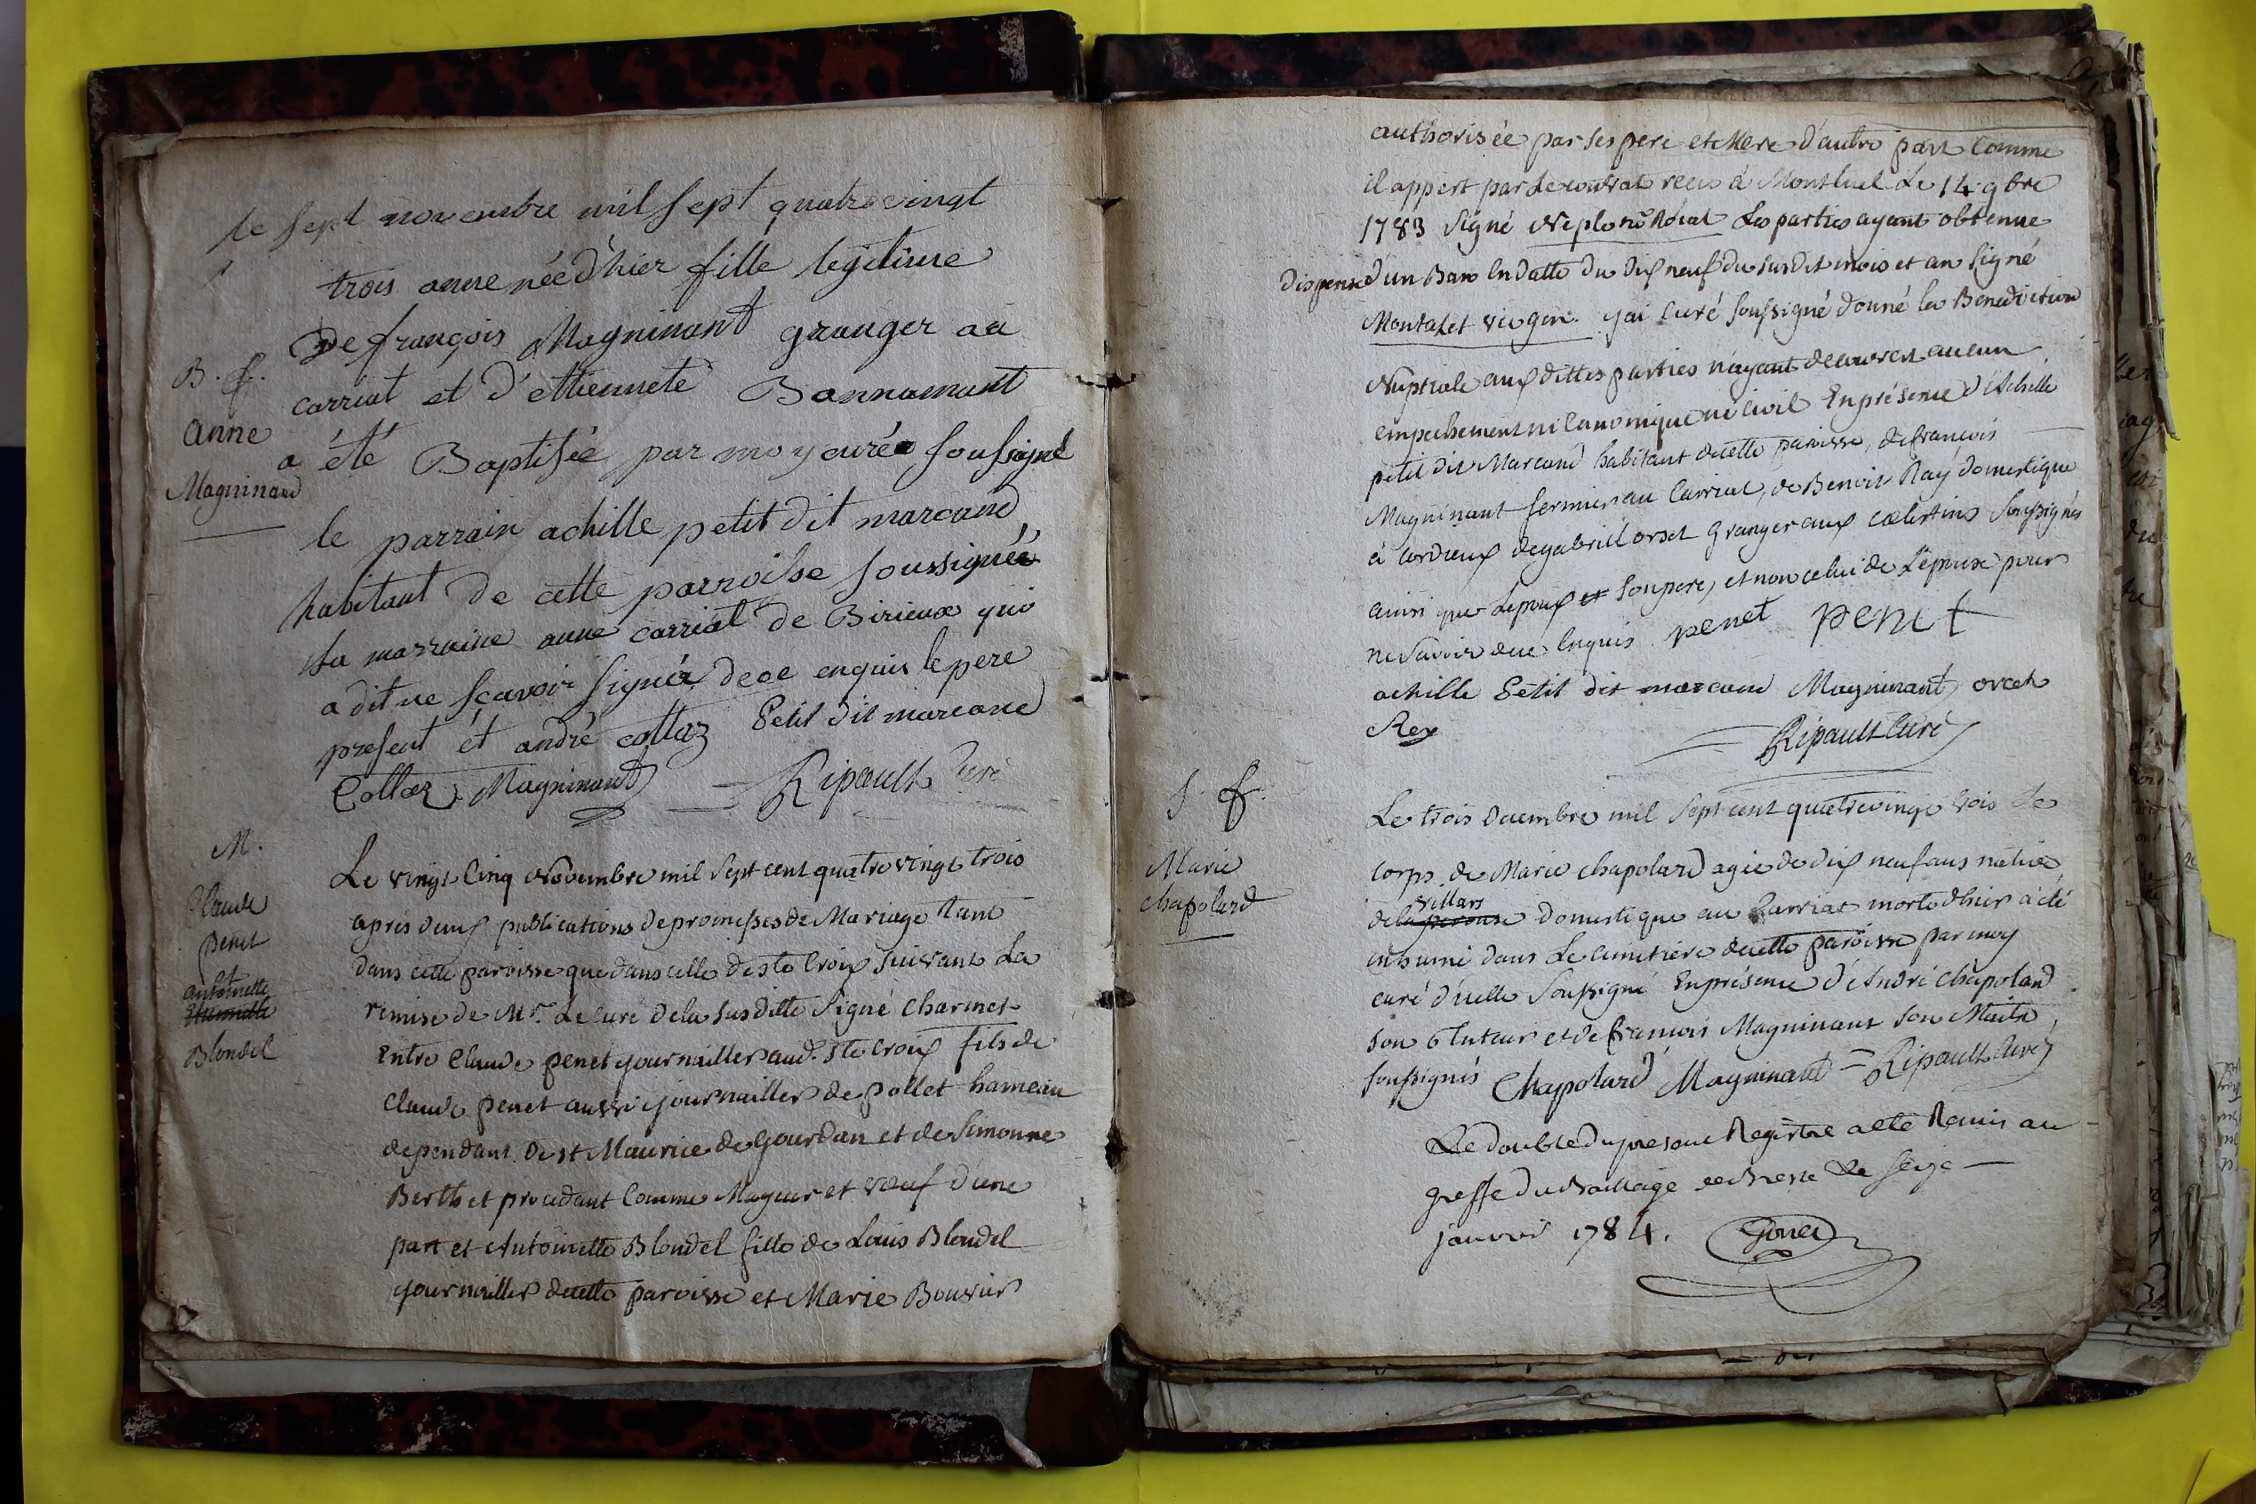 le sept novembre mil sept quatre vingt
trois anne née d'hier fille legitime
de françois Magninant granger au
B. f.
carriat et d'ettiennete Bannamant
anne
a été Baptisée par moy curé soussigné
Magninand
le parrain achille petit dit marcand
habitant de cette parroisse soussignée
la marraine anne carriat de Birieux qui
a dit ne scavoir signér de ce enquis le pere
present et andré collaz Petit dit marcand
Collaz Magninand Ripault Curé
M.
Claude
penet
antoinette
Blondel
Le vingt Cinq Novembre mil Sept cent quatre vingt trois
apres deux publications de promesses de Mariage tant
dans cette paroisse que dans celle de ste Croix suivant La
remise de Mr. Le curé dela susditte Signé Charmet
Entre Claude penet journaillier aud. ste Croix fils de
Claude penet aussi journaillier de pollet hameau
dependant de st Maurice de Gourdan et de Simonne
Berthet procedant Comme Mayeur et veuf d'une
part et Antoinette Blondel fille de Louis Blondel
journaillier decette paroisse et Marie Bouvier
authorisée par ses pere et Mere d'autre part Comme
il appert par Le contrat recu à Montluel Le 14 9bre
1783 Signé Neplo nre Roial Les parties ayant obtenue
dispense d'un Ban En datte du dix neuf du susdit mois et an signé
Montalet vic gen. j'ai Curé soussigné donné la Benediction
Nuptiale aux dittes parties n'ayant decouvert aucun
empechement ni Canonique ni Civil En présence d'Achille
petit dit Marcand habitant decette paroisse, de francois
Magninant fermier au Carriat, de Benoit Ray domestique
à Cordieux de gabriel orset Granger aux Celestins Soussignés
ainsi que Lepoux et son pere, et non celui de L'epouse pour
ne savoir dece Enquis penet penet
achille Petit dit marcand Magninant orcet
Rey
Ripault Curé
S. f.
Marie
Chapolard
Le trois decembre mil Sept cent quatre vingt trois Le
Corps de Marie Chapolard agée de dix neuf ans native
villars
de la perouse domestique au Carriat morte d'hier à été
inhumé dans Le Cimetiere decette paroisse par moy
curé d'icelle Soussigné En présence d'André Chapolard
son tuteur et de francois Magninant son Maitre
soussignés Chapolard Magninant Ripault Curé
Le double du present Registre a eté Remis au
greffe du Bailliage de Bresse Le seize
janvier 1784.